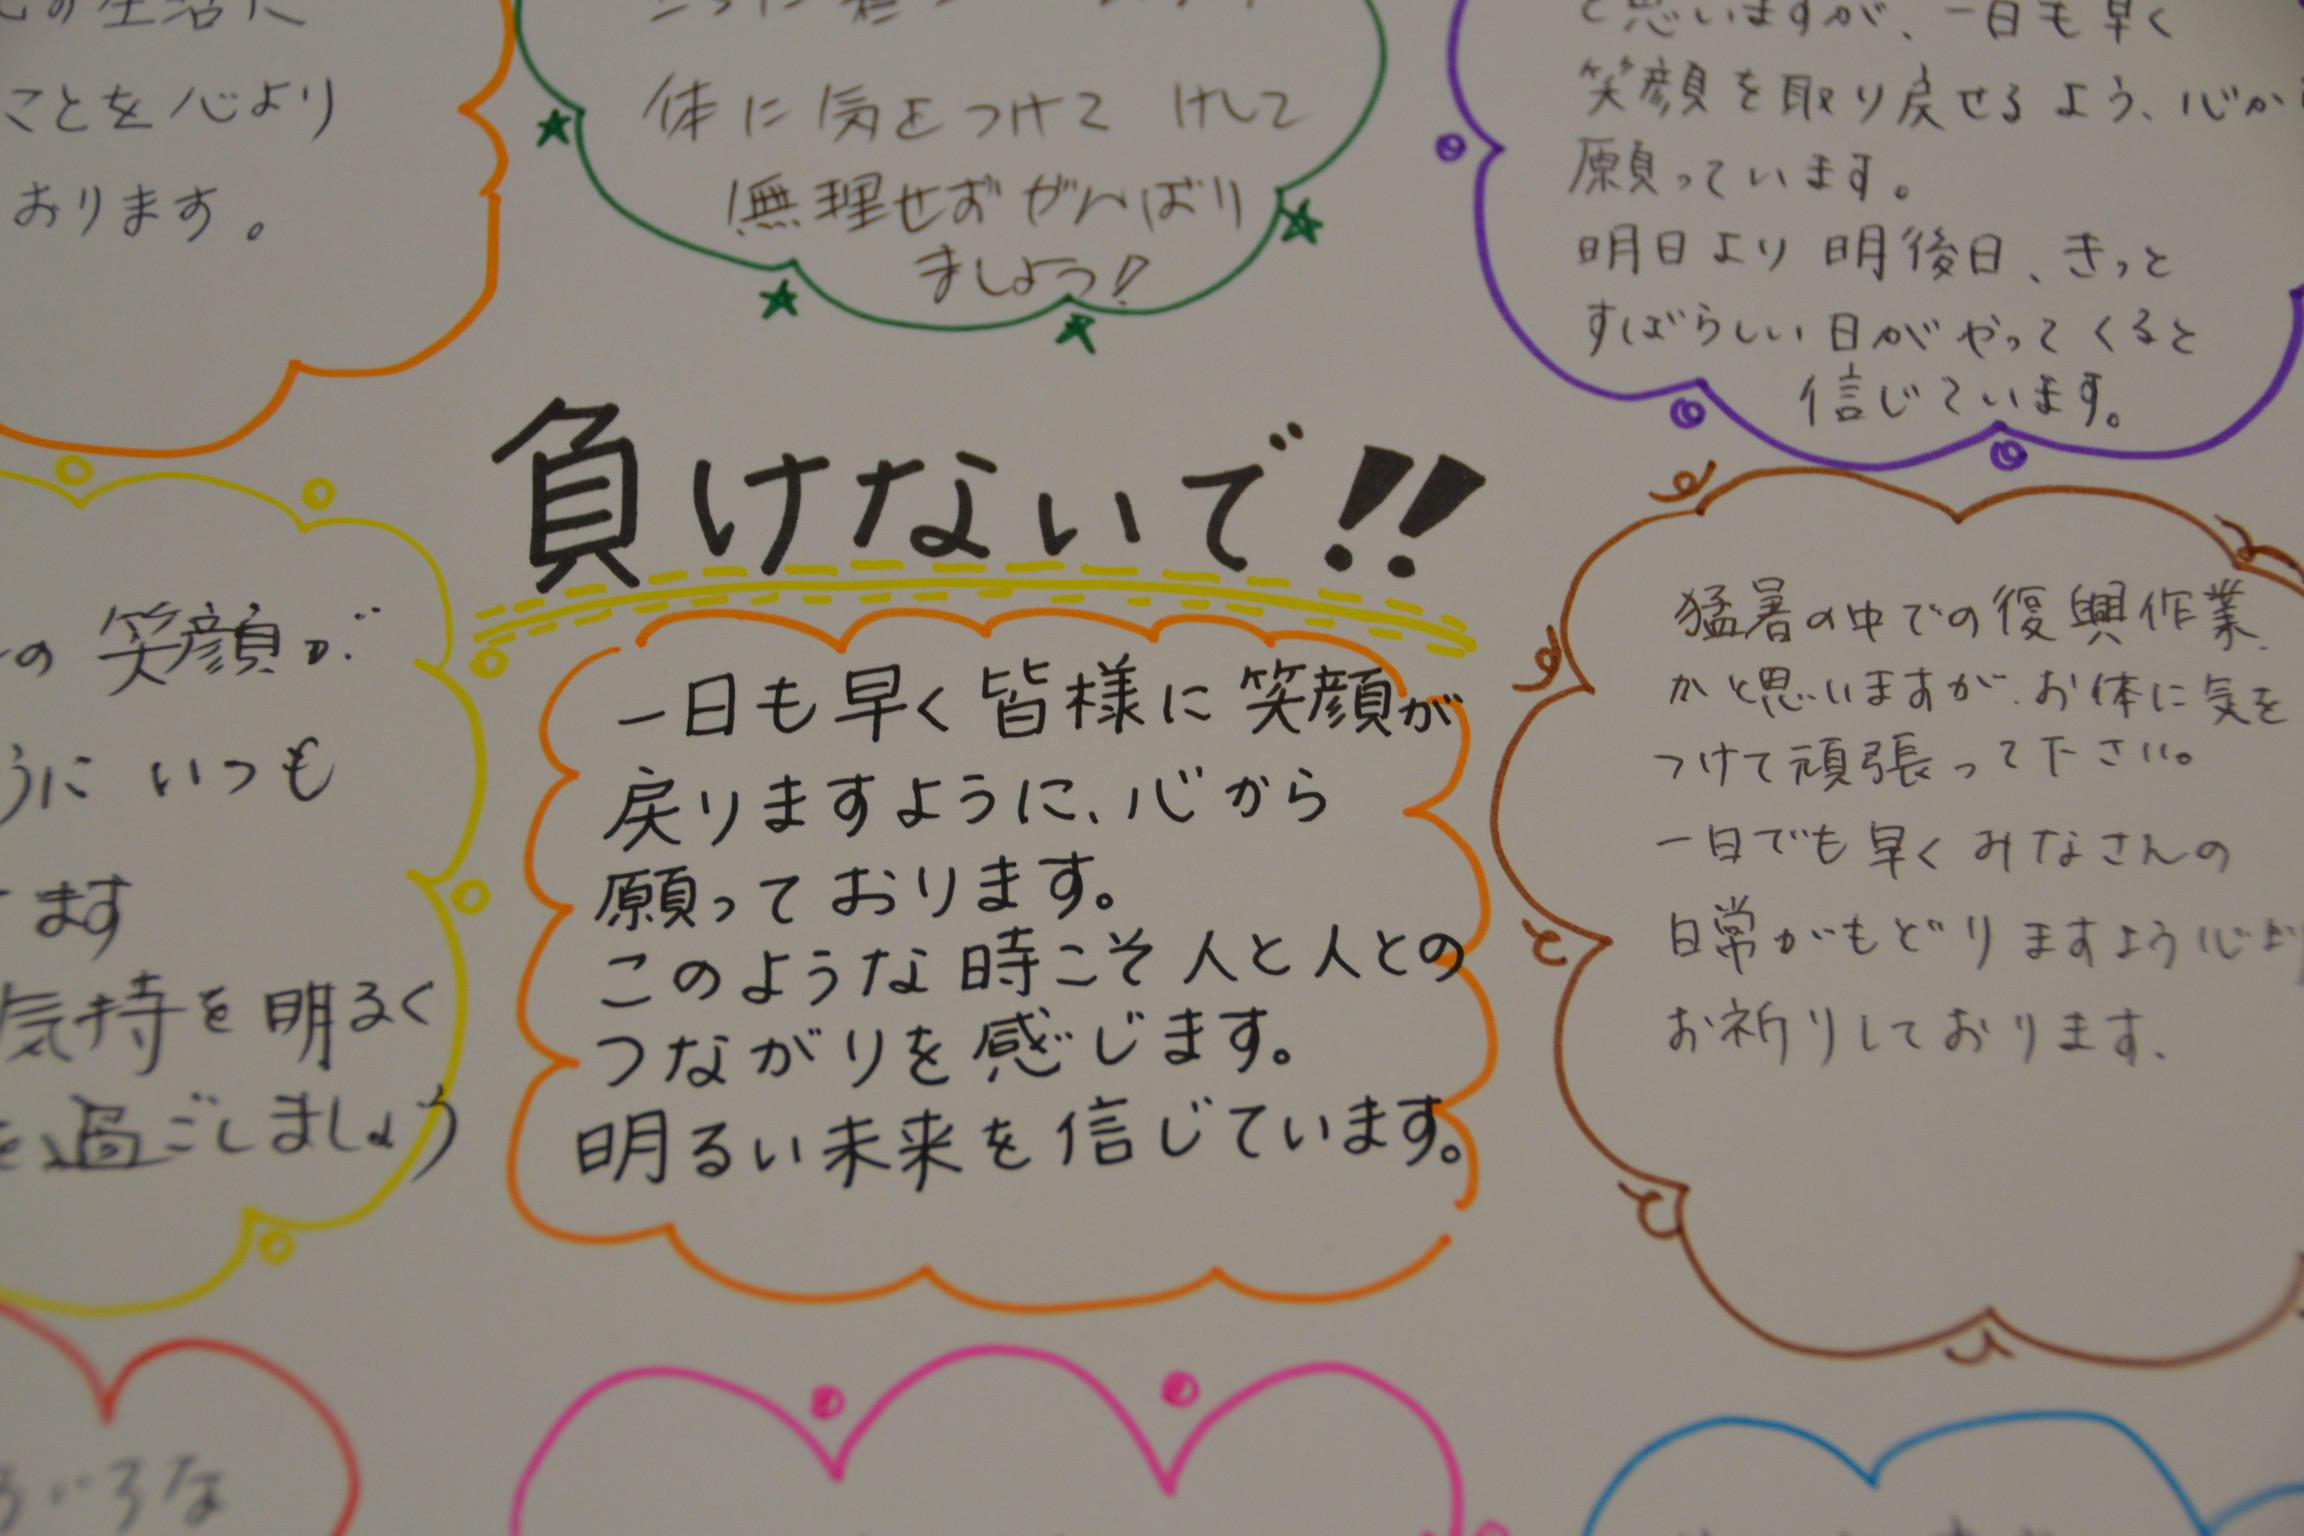 の生活に
ことを心より
おります。
体に気をつけて けして
無理せずがんばり
ましょう!
と思いますが、一日も早く
笑顔を取り戻せるよう、心か
願っています。
明日より明後日、きっと
すばらしい日がやってくると
信じています。
負けないで!!
の笑顔が
うに いつも
ます
気持を明るく
を過ごしましょう
一日も早く皆様に笑顔が
戻りますように、心から
願っております。
このような時こそ人と人との
つながりを感じます。
明るい未来を信じています。
猛暑の中での復興作業
かと思いますが、お体に気を
つけて頑張って下さい。
一日でも早くみなさんの
日常がもどりますよう心より
お祈りしております。
ろいろな